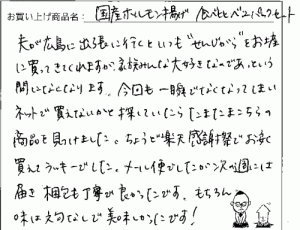 お買い上げ商品名： 国産ホルモン揚げ 食べくらべ2パックセット
夫が広島に出張に行くといつも"せんじがら"をお土産
に買ってきてくれますが、家族みんな大好きなので、あっという
間になくなります。今回も一瞬でなくなってしまい
ネットで買えないかと探していたらたまたまこちらの
商品を見つけました。ちょうど楽天感謝祭でお安く
買えてラッキーでした。メール便でしたが次の週には
届き梱包も丁寧で良かったです。もちろん
味は文句なしで美味しかったです！